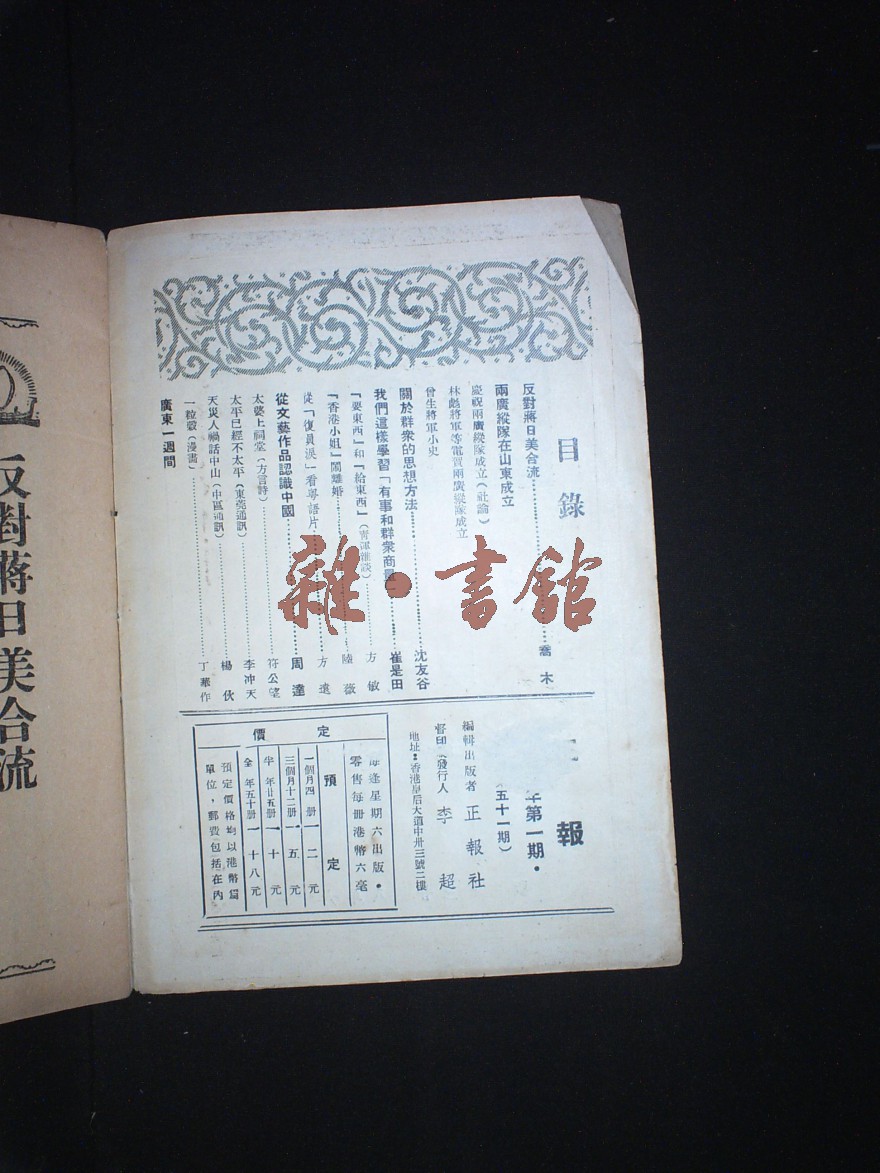 目錄
反對蔣日美合流……喬木
兩廣縱隊在山東成立
慶祝兩廣縱隊成立(社論)
林彪將軍等電賀兩廣縱隊成立
曾生將軍小史
關於群衆的思想方法……沈友谷
我們這樣學習「有事和群衆商量」……崔是田
「要東西」和「給東西」(青運雜談)……方敏
「香港小姐」鬧離婚……陸薇
從「復員淚」看粵語片……方遠
從文藝作品認識中國……周達
太婆上祠堂(方言詩)……符公望
太平已經不太平(東莞通訊)……李冲天
天災人禍話中山(中區通訊)……楊伙
一粒穀(漫畫)……丁華作
廣東一週間
報
年第一期・
(五十一期)
編輯出版者 正報社
督印(發行人) 李超
地址:香港皇后大道中卅三號二樓
每逢星期六出版・
零售每冊港幣六毫
定價
預定
一個月四冊 二元
三個月十二冊 五元
半年廿五冊 十元
全年五十冊 十八元
預定價格均以港幣爲
單位,郵費包括在內
反對蔣日美合流
雜・書館